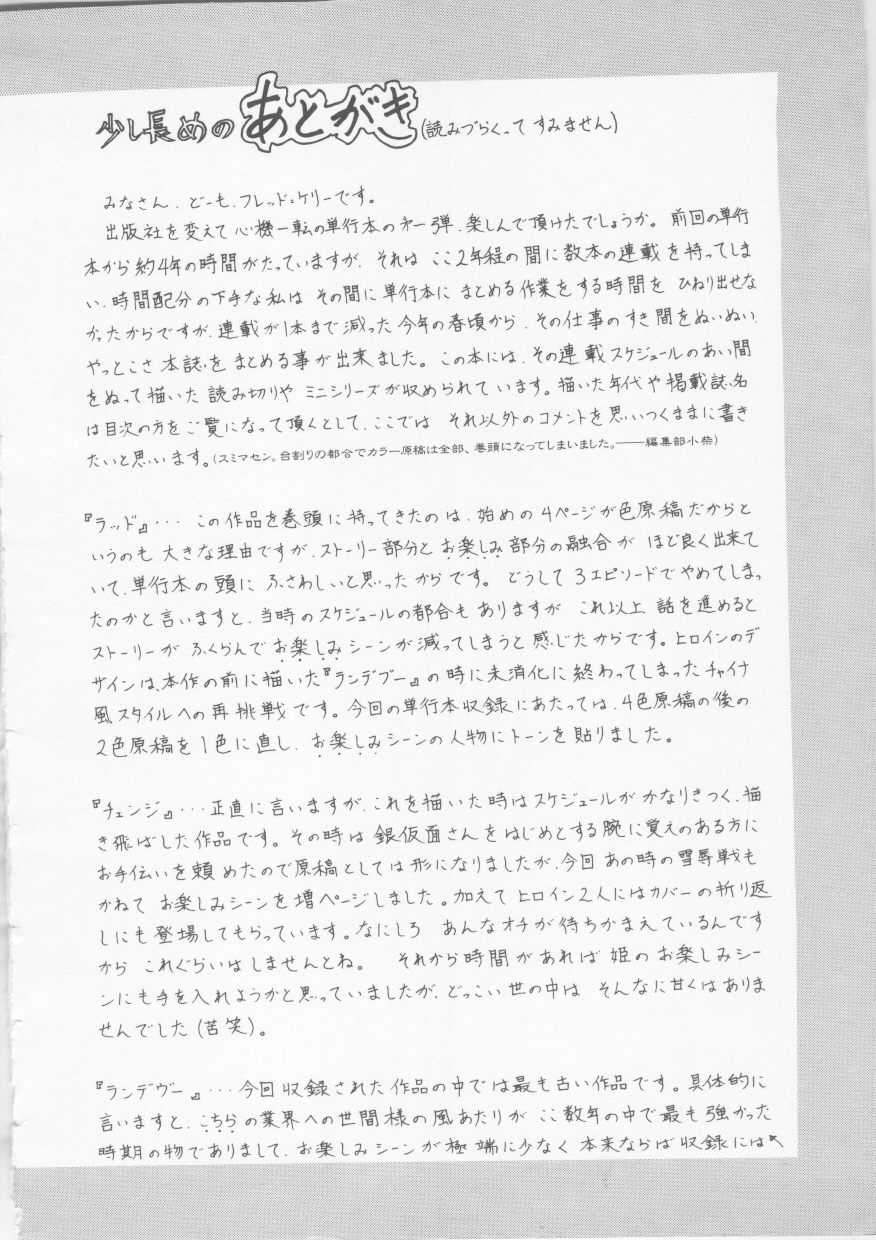 少し長めのあとがき(読みづらくってすみません)
みなさん、どーも、フレッド=ケリーです。
出版社を変えて心機一転の単行本の才一弾、楽しんで頂けたでしょうか。前回の単行
本から約4年の時間がたっていますが、それは ここ2年程の間に数本の連載を持ってしま
い、時間配分の下手な私は その間に単行本に まとめる作業をする時間を ひねり出せな
かったからですが、連載が1本まで減った今年の春頃から、その仕事のすき間をぬいぬい、
やっとこさ 本誌を まとめる事が出来ました。この本には、その連載スケジュールのあい間
をぬって描いた 読み切りや ミニシリーズが収められています。描いた年代や掲載誌名
は目次の方をご覧になって頂くとして、ここでは それ以外のコメントを思いつくままに書き
たいと思います。(スミマセン。台割りの都合でカラー原稿は全部、巻頭になってしまいました。——編集部小柴)
『ラッド』・・・ この作品を巻頭に持ってきたのは、始めの4ページが色原稿だからと
いうのも 大きな理由ですが、ストーリー部分とお楽しみ部分の融合が ほど良く出来て
いて、単行本の頭に ふさわしいと思ったからです。 どうして3エピソードでやめてしまっ
たのかと言いますと、当時のスケジュールの都合もありますが これ以上 話を進めると
ストーリーが ふくらんでお楽しみシーンが減ってしまうと感じたからです。ヒロインのデ
ザインは、本作の前に描いた『ランデブー』の時に未消化に終わってしまったチャイナ
風スタイルへの再挑戦です。今回の単行本収録にあたっては、4色原稿の後の
2色原稿を1色に直し、お楽しみシーンの人物にトーンを貼りました。
『チェンジ』・・・正直に言いますが、これを描いた時はスケジュールがかなりきつく、描
き飛ばした作品です。その時は 銀仮面さんをはじめとする腕に覚えのある方に
お手伝いを頼めたので原稿としては形になりましたが、今回 あの時の雪辱戦も
かねて お楽しみシーンを増ページしました。加えて ヒロイン2人にはカバーの折り返
しにも登場してもらっています。なにしろ あんなオチが待ちかまえているんです
から これぐらいはしませんとね。 それから時間があれば 姫のお楽しみシー
ンにも手を入れようかと思っていましたが、どっこい世の中は そんなに甘くはありま
せんでした(苦笑)。
『ランデヴー』・・・今回収録された作品の中では最も古い作品です。具体的に
言いますと、こちらの業界への世間様の風あたりが ここ数年の中で最も強かった
時期の物でありまして、お楽しみシーンが極端に少なく 本来ならば収録には↖